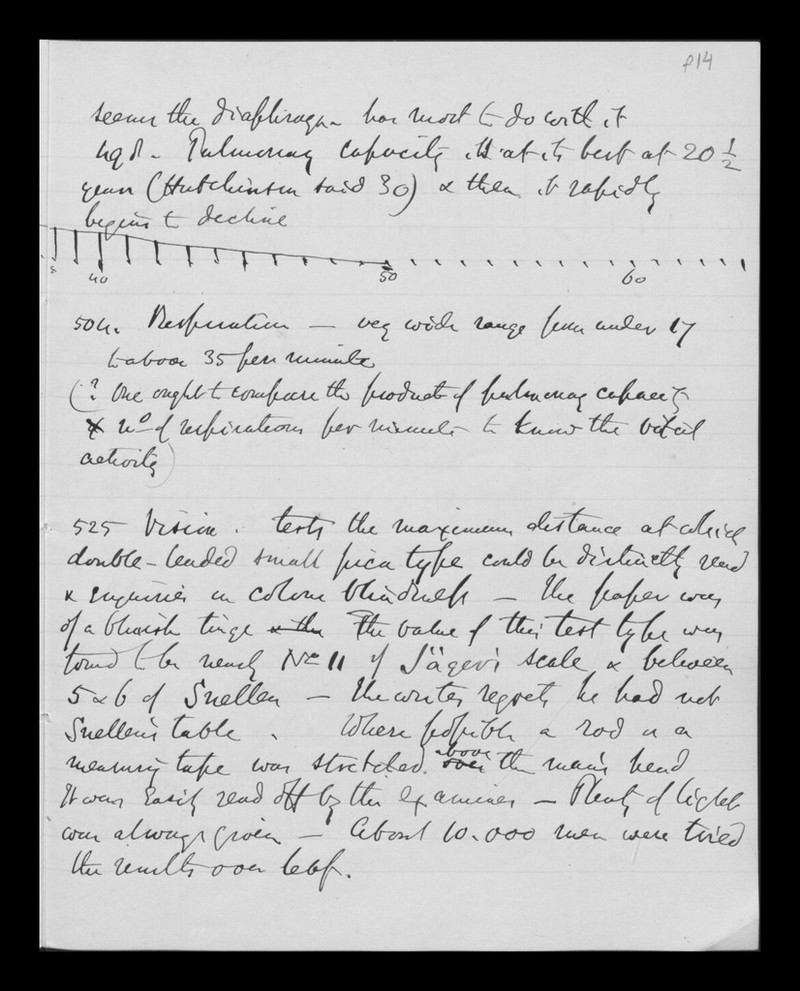 f14
seems the diaphragm has most to do with it
498. Pulmonary capacity is at its best at 20 1/2
years (Hutchinson said 30) & then it rapidly
begins to decline
5 40 50 60
504. Respiration — very wide range from under 17
to above 35 per minute
(? One ought to compare the product of pulmonary capacity
× no of respirations per minute to know the vital
activity)
525 Vision. tests the maximum distance at which
double-leaded small pica type could be distinctly read
& enquiries on colour blindness — the paper was
of a bluish tinge & the The value of this test type was
found to be nearly No 11 of Jäger's scale & between
5 & 6 of Snellen — the writer regrets he had not
Snellen's table. Where possible a rod or a
measuring tape was stretched over above the man's head
It was easily read off by the examiner — Plenty of light
was always given — About 10.000 men were tried
the results over leaf.